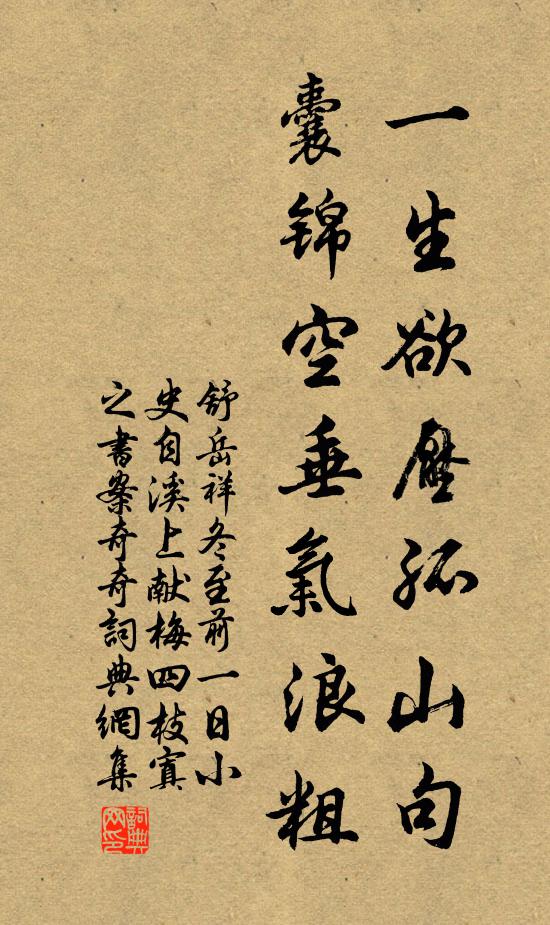 一生欲壓孤山句
囊锦空垂氣浪粗
舒岳祥冬至前一日小
史自溪上献梅四枝寘
之書案奇奇詞典網集
詞典网印